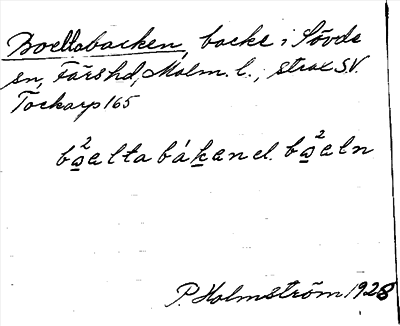 Boellabacken, backe i Sövde
sn, Färshd, Malm. l., strax S.V.
Tockarp 165
ba²eltabákanel. ba²eln
P. Holmström 1928